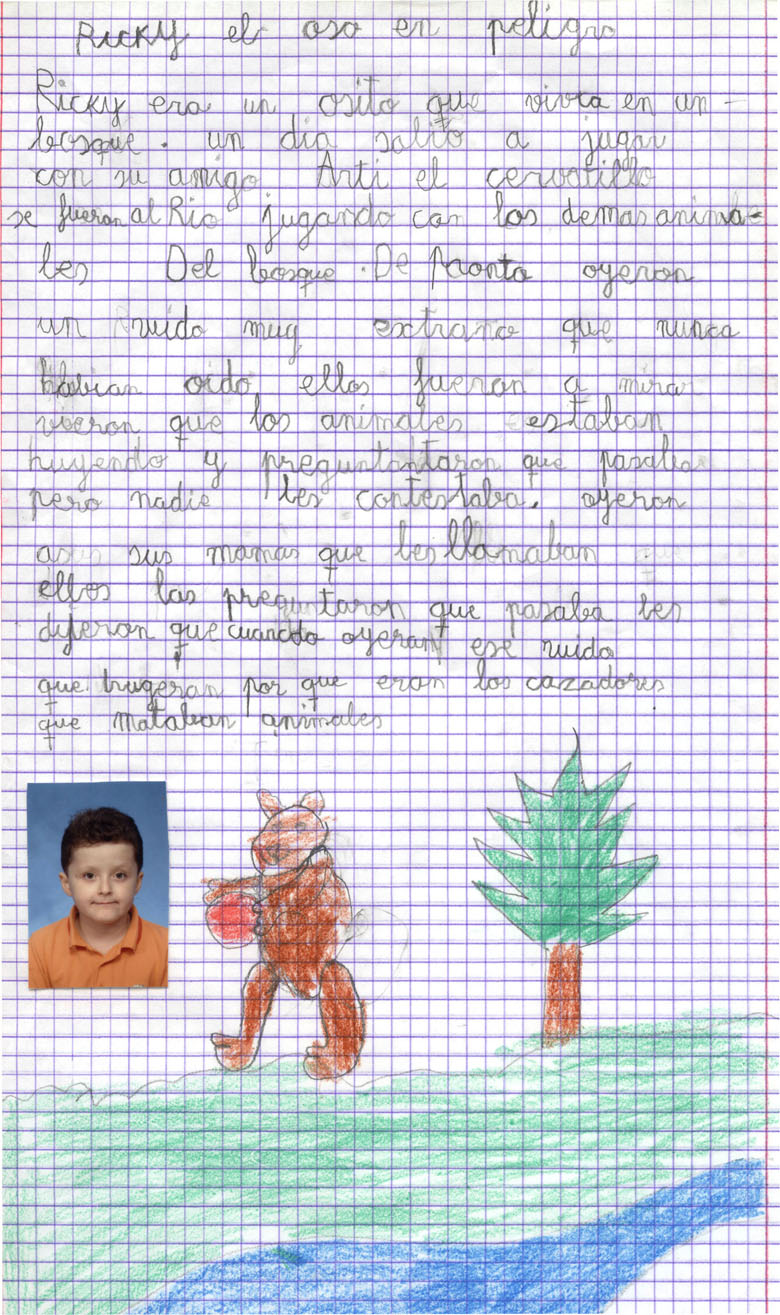 Ricky el oso en peligro
Ricky era un osito que vivia en un
bosque. un dia salio a jugar
con su amigo Arti el cervatillo
se fueron al Rio jugando con los demas anima-
les Del bosque. De pronto oyeron
un ruido muy extraño que nunca
habian oido ellos fueron a mirar
vieron que los animales estaban
huyendo y preguntantaron que pasaba
pero nadie les contestaba. oyeron
a sus mamas que les llamaban
ellos las preguntaron que pasaba les
dijeron que cuando oyeran ese ruido
que hugeran por que eran los cazadores
que mataban animales